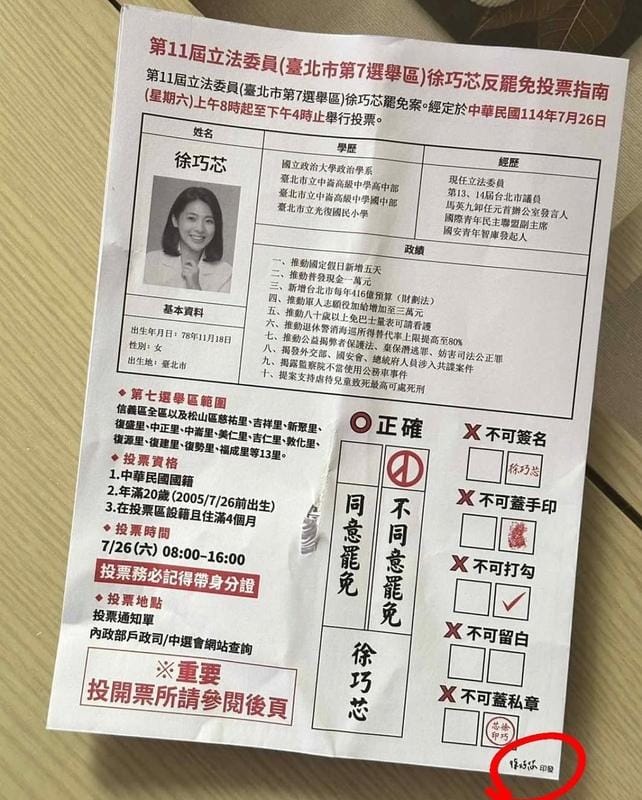 第11屆立法委員(臺北市第7選舉區)徐巧芯反罷免投票指南
第11屆立法委員(臺北市第7選舉區)徐巧芯罷免案。經定於中華民國114年7月26日
(星期六)上午8時起至下午4時止舉行投票。
姓名
徐巧芯
基本資料
出生年月日：78年11月18日
性別：女
出生地：臺北市
學歷
國立政治大學政治學系
臺北市立中崙高級中學高中部
臺北市立中崙高級中學國中部
臺北市立光復國民小學
經歷
現任立法委員
第13、14屆台北市議員
馬英九卸任元首辦公室發言人
國際青年民主聯盟副主席
國安青年智庫發起人
政績
一、推動國定假日新增五天
二、推動普發現金一萬元
三、新增台北市每年416億預算（財劃法）
四、推動軍人志願役加給增加至三萬元
五、推動八十歲以上免巴士量表可請看護
六、推動退休警消海巡所得替代率上限提高至80%
七、推動公益揭弊者保護法、棄保潛逃罪、妨害司法公正罪
八、揭發外交部、國安會、總統府人員涉入共諜案件
九、揭露監察院不當使用公務車事件
十、提案支持虐待兒童致死最高可處死刑
◆ 第七選舉區範圍
信義區全區以及松山區慈祐里、吉祥里、新聚里、
復盛里、中正里、中崙里、美仁里、吉仁里、敦化里、
復源里、復建里、復勢里、福成里等13里。
◆ 投票資格
1.中華民國國籍
2.年滿20歲（2005/7/26前出生）
3.在投票區設籍且住滿4個月
◆ 投票時間
7/26（六）08:00–16:00
投票務必記得帶身分證
◆ 投票地點
投票通知單
內政部戶政司/中選會網站查詢
※重要
投開票所請參閱後頁
正確
同意罷免
不同意罷免
徐巧芯
X 不可簽名
徐巧芯
X 不可蓋手印
X 不可打勾
X 不可留白
X 不可蓋私章
芯徐
印巧
徐巧芯 印發